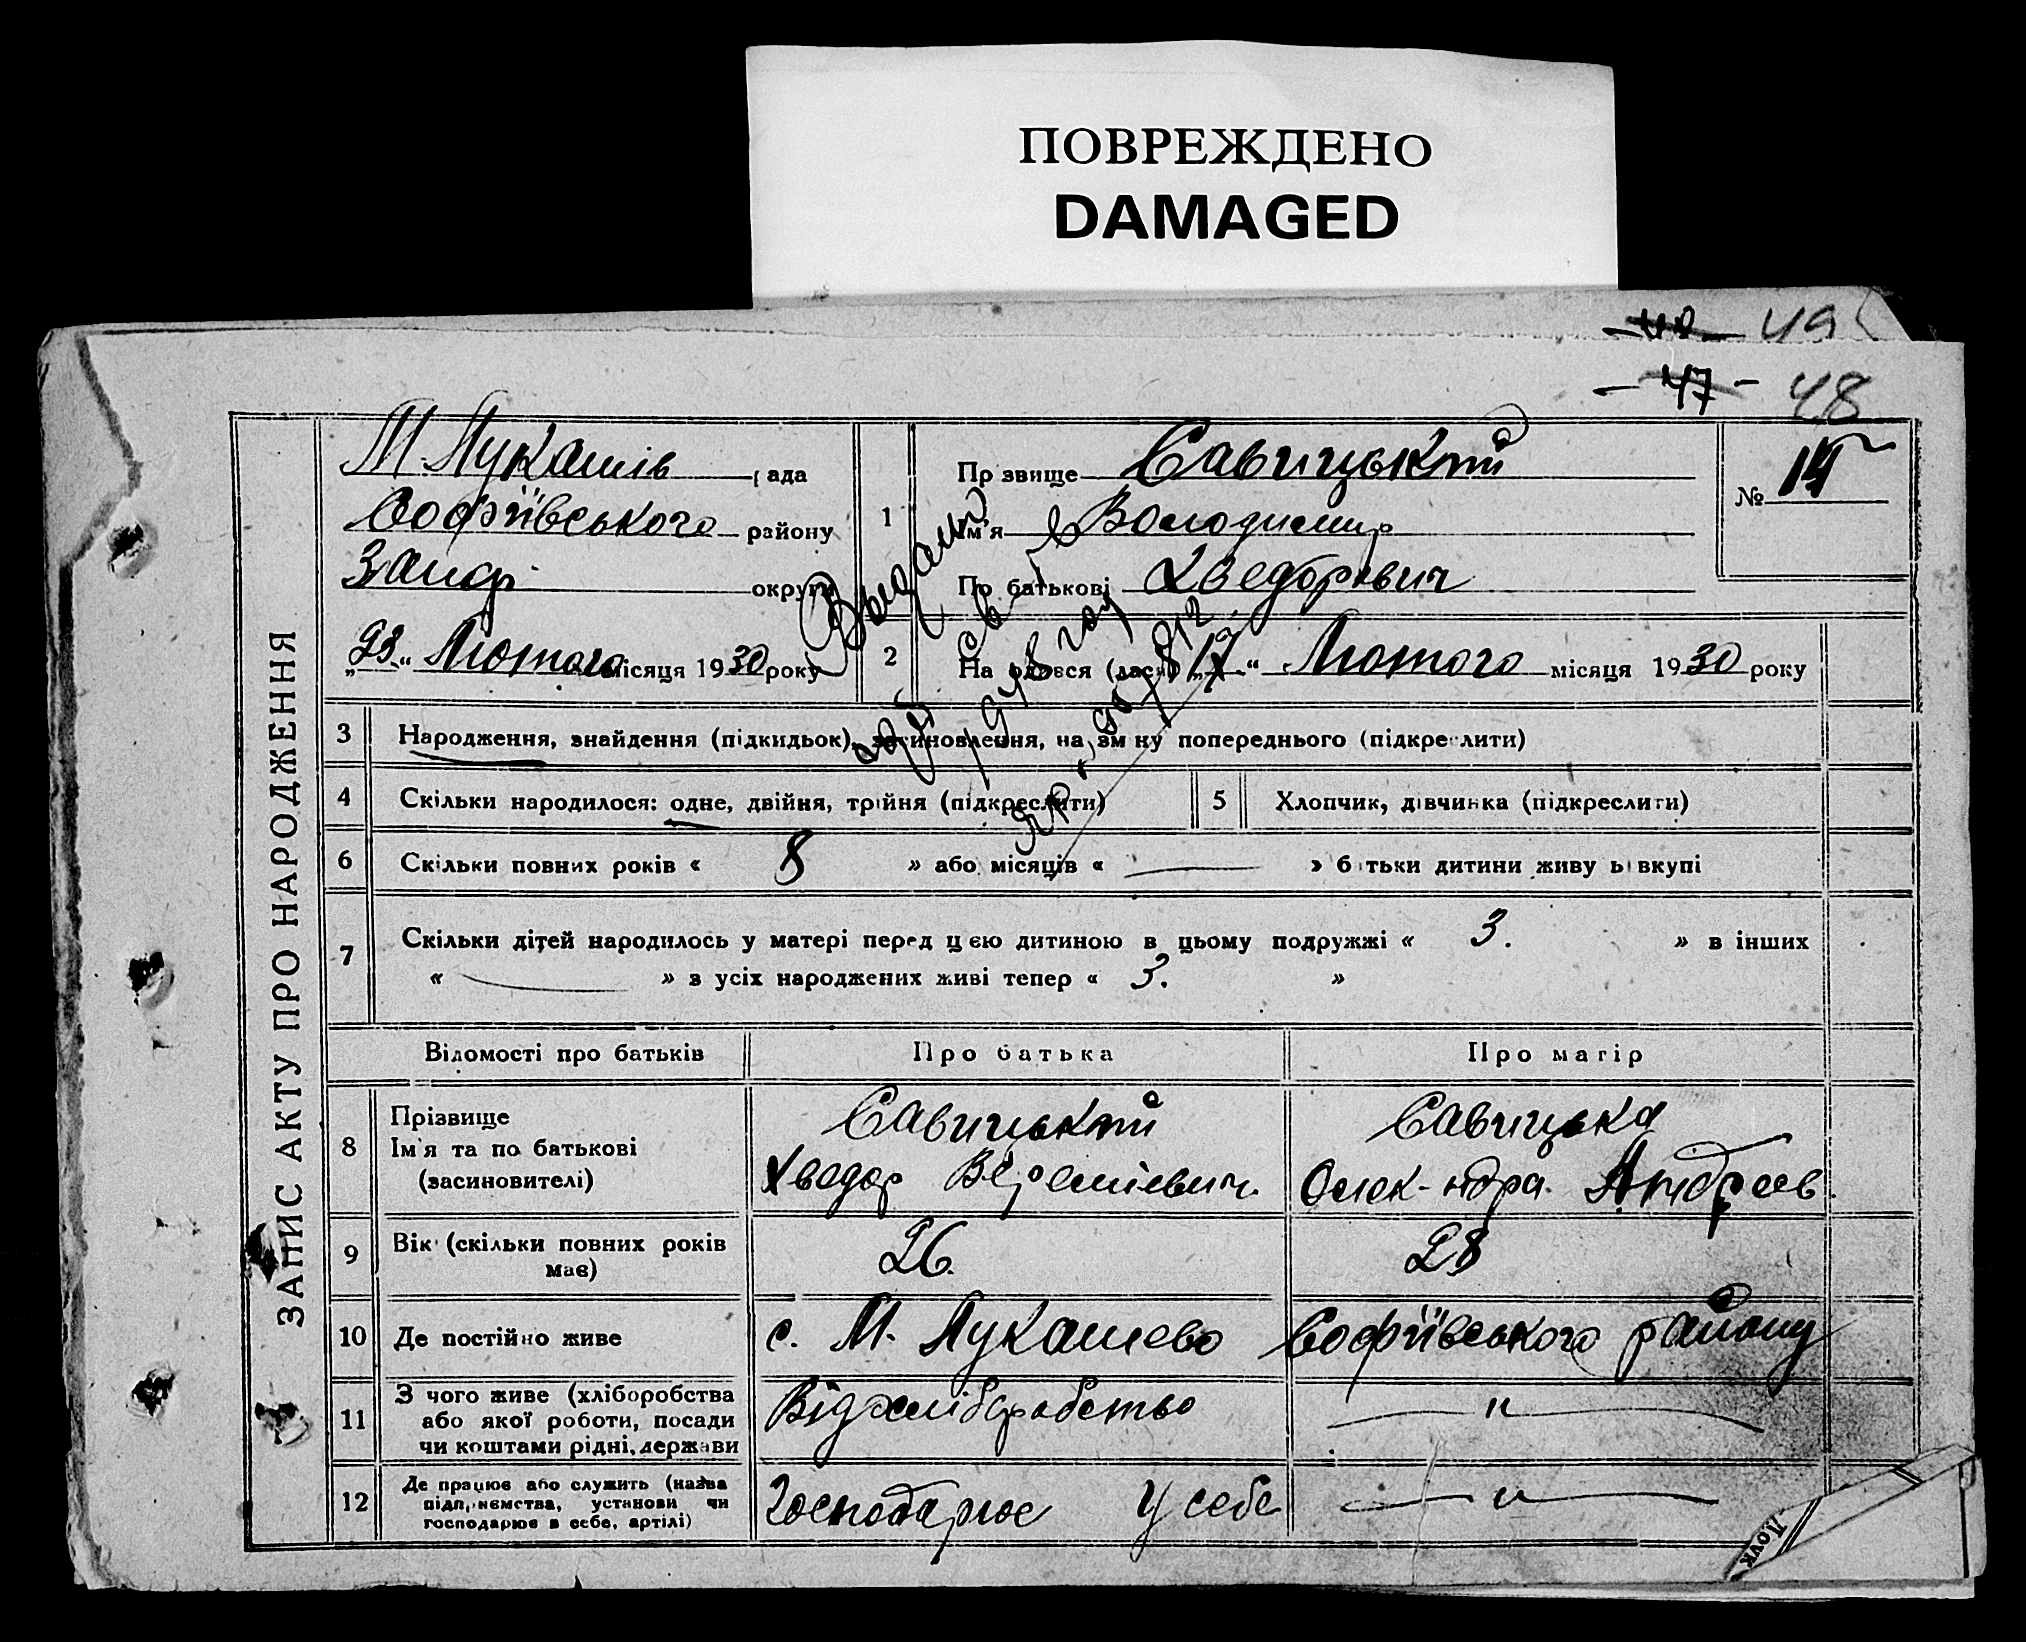 ПОВРЕЖДЕНО
DAMAGED
49
47 - 48
ЗАПИС АКТУ ПРО НАРОДЖЕННЯ
М Лукашів рада
Софіївського району
Запор округи
„23“ Лютого місяця 1930 року
1
Прізвище Савицький
Ім'я Володимир
По батькові Хведорович
№ 15
2
Народився (лася) „17“ Лютого місяця 1930 року
Выдано
1948
3 Народження, знайдення (підкидьок), засиновлення, на зміну попереднього (підкреслити)
4 Скільки народилося: одне, двійня, трійня (підкреслити)
5 Хлопчик, дівчинка (підкреслити)
6 Скільки повних років « 8 » або місяців « — » батьки дитини живуть вкупі
7 Скільки дітей народилось у матері перед цією дитиною в цьому подружжі « 3. » в інших
« — » з усіх народжених живі тепер « 3. »
Відомості про батьків Про батька Про матір
8 Прізвище
Ім'я та по батькові
(засиновителі)
Савицький
Хведор
Савицька
Олек-ндра Андреев
9 Вік (скільки повних років
має)
26. 28
10 Де постійно живе с. М. Лукашево Софіївського району
11 З чого живе (хліборобства
або якої роботи, посади
чи коштами рідні, держави
Від хліборобство — " —
12 Де працює або служить (назва
підприємства, установи чи
господарює в себе, артілі)
Господарює у себе — " —